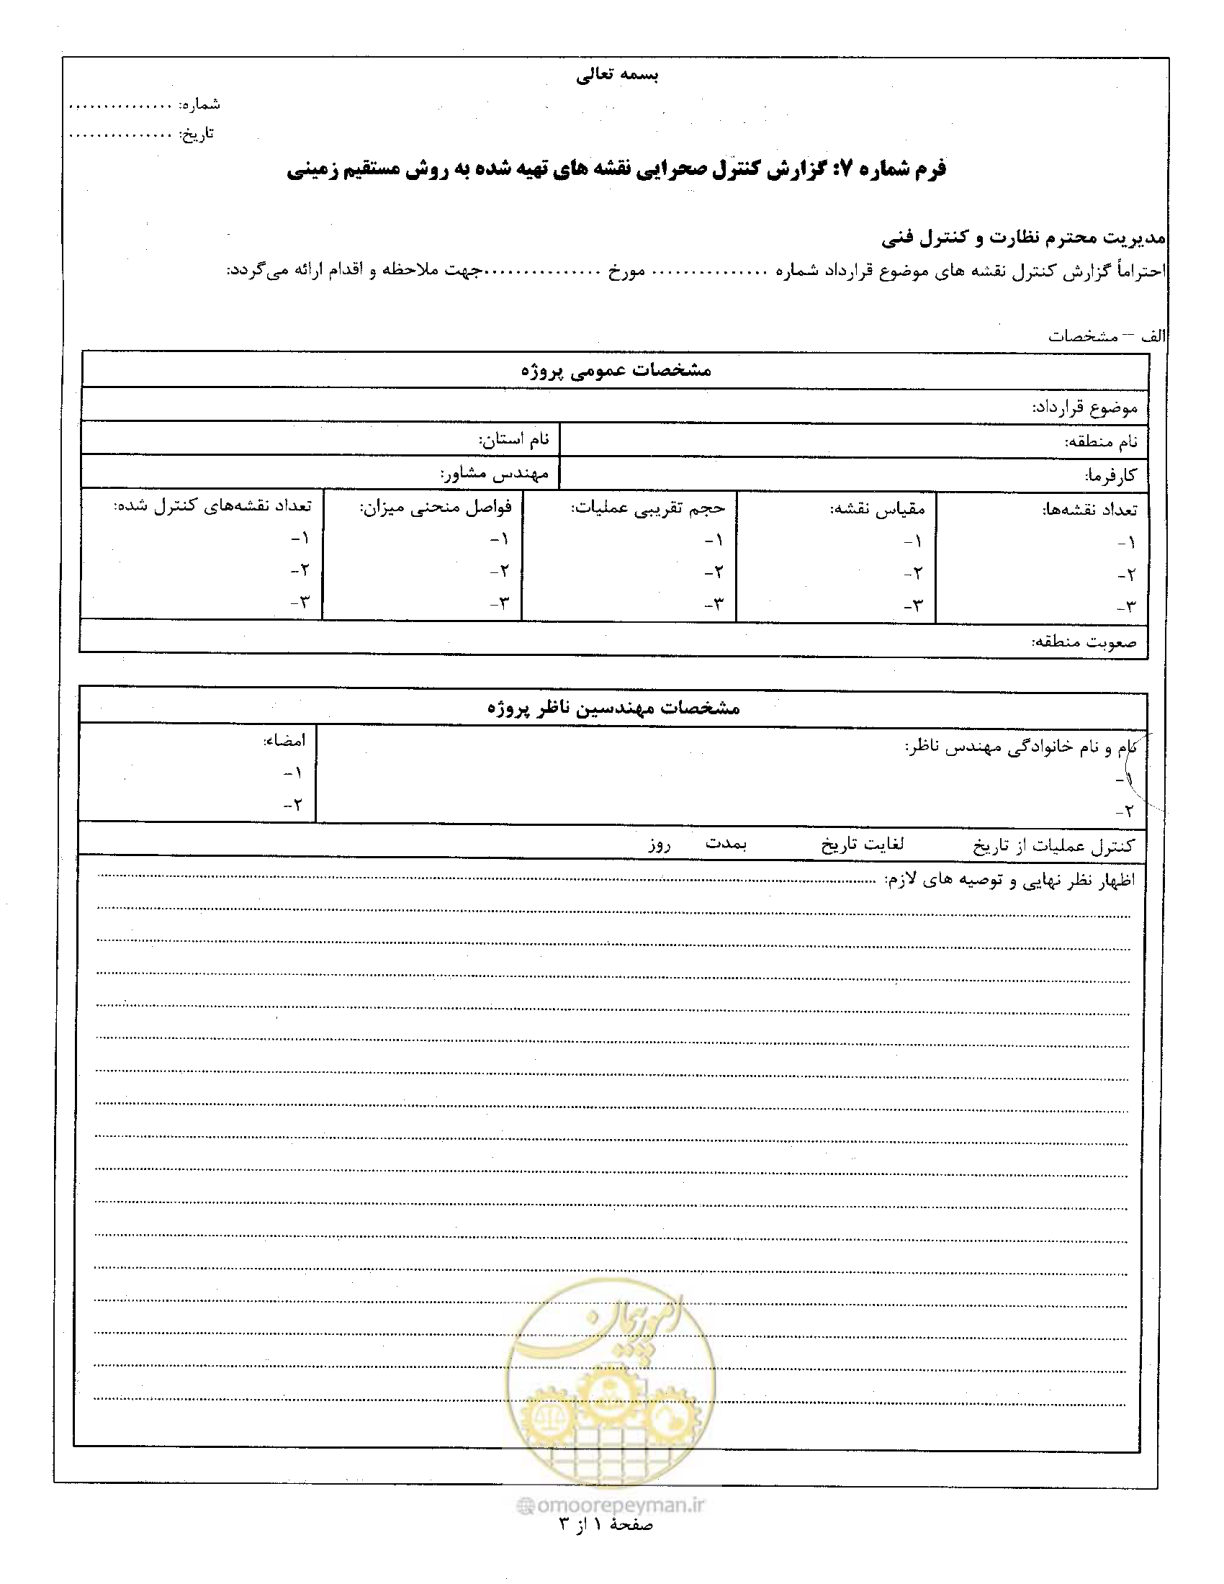 بسمه تعالی
شماره: ...............
تاریخ: ...............
فرم شماره ۷: گزارش کنترل صحرایی نقشه های تهیه شده به روش مستقیم زمینی
مدیریت محترم نظارت و کنترل فنی
احتراماً گزارش کنترل نقشه های موضوع قرارداد شماره ............... مورخ ...............جهت ملاحظه و اقدام ارائه می‌گردد:
الف – مشخصات
مشخصات عمومی پروژه
موضوع قرارداد:
نام منطقه: نام استان:
کارفرما: مهندس مشاور:
تعداد نقشه‌ها: مقیاس نقشه: حجم تقریبی عملیات: فواصل منحنی میزان: تعداد نقشه‌های کنترل شده:
۱- ۱- ۱- ۱- ۱-
۲- ۲- ۲- ۲- ۲-
۳- ۳- ۳- ۳- ۳-
صعوبت منطقه:
مشخصات مهندسین ناظر پروژه
نام و نام خانوادگی مهندس ناظر: امضاء:
۱- ۱-
۲- ۲-
کنترل عملیات از تاریخ لغایت تاریخ بمدت روز
اظهار نظر نهایی و توصیه های لازم: ...............
امور پیمان
@omoorepeyman.ir
صفحهٔ ۱ از ۳